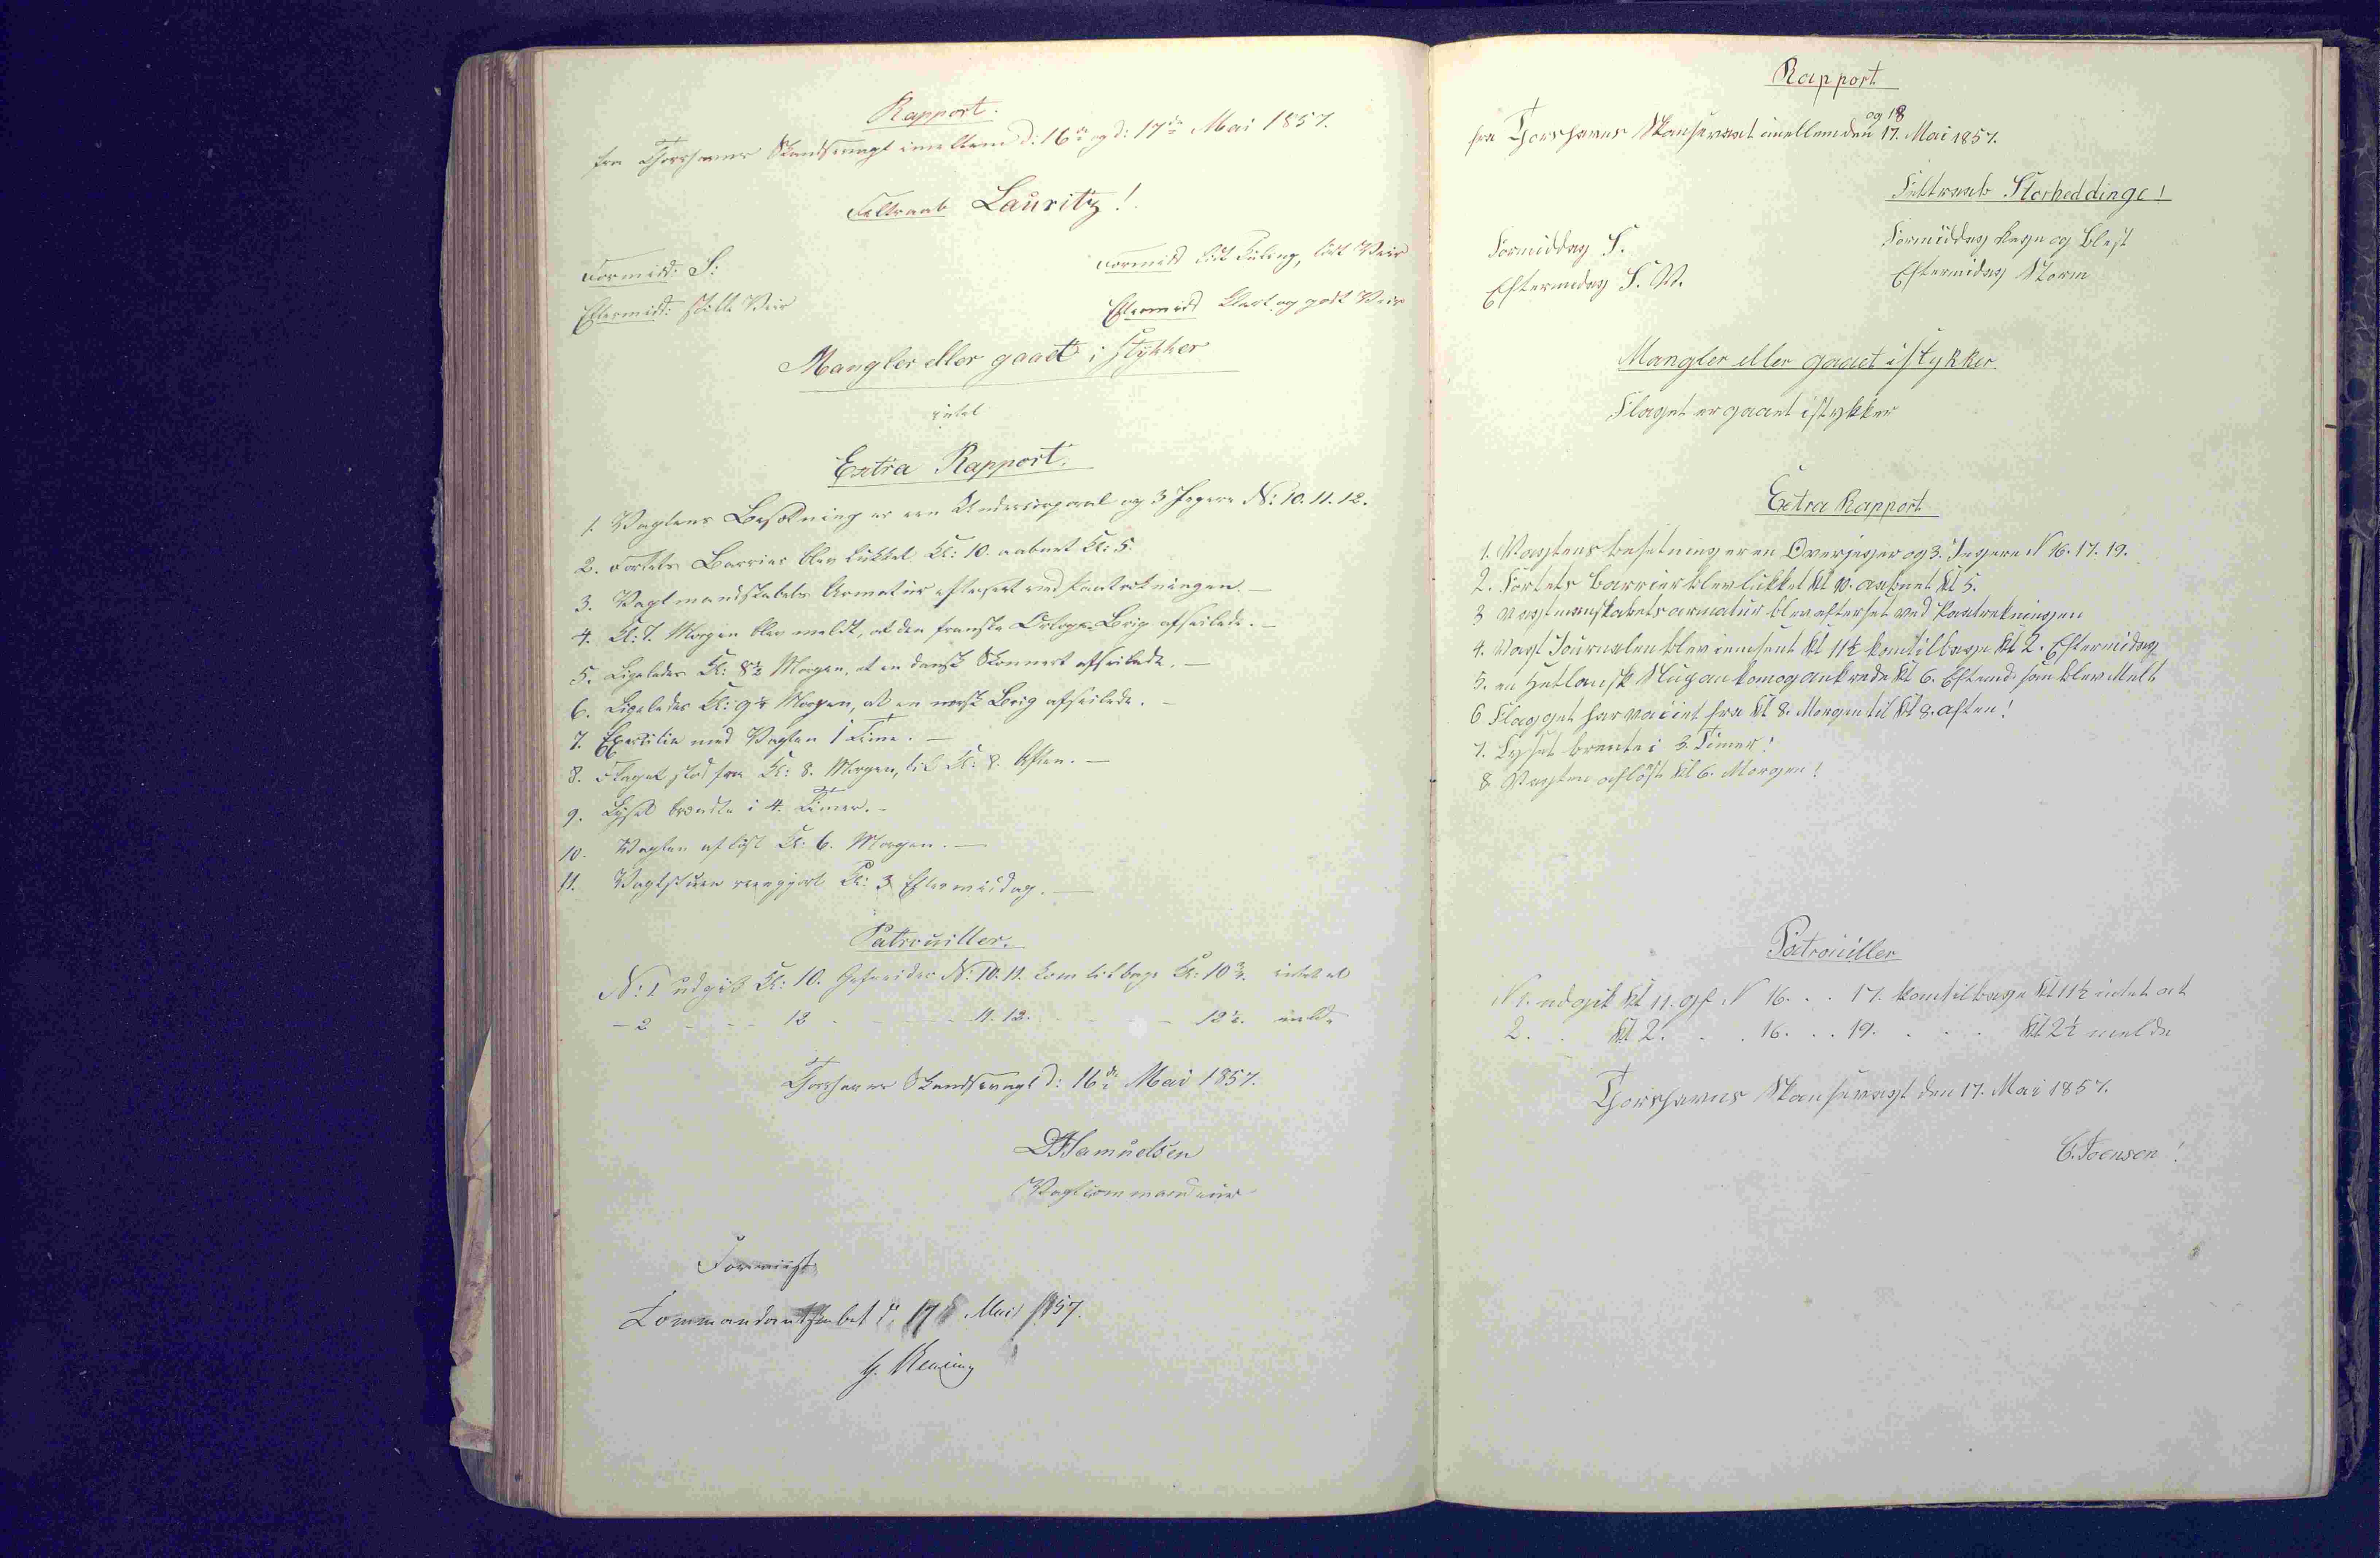 Rapport.
fra Thorshavns Skandsevagt imellem d: 16de og d: 17de Mai 1857.
Feltraab Lauritz!
Formidd: S:
Formidd lidt Kuling, lidt Veir
Eftermidd: stille Veir
Eftermidd klart og godt Veir
Mangler eller gaaet i stykker
intet
Extra Rapport.
1. Vagtens Besætning er een Undercorporal og 3 Jægere N: 10. 11. 12.
2. Fortets Barrier blev lukket Kl: 10. aabnet Kl: 5.
3. Vagtmandskabets Armatur efterseet ved Fratrækningen. —
4. Kl: 7. Morgen blev meldt, at den franske Orlogs-Brig afseilede. —
5. Ligeledes Kl: 8½ Morgen, at en dansk Skonnert afseilede. —
6. Ligeledes Kl: 9¼ Morgen, at en norsk Brig afseilede. —
7. Exersitie med Vagten 1 Time. —
8. Flaget stod fra Kl: 8. Morgen, til Kl: 8. Aften. —
9. Lyset brændte i 4. Timer. —
10. Vagten afløst Kl: 6. Morgen. —
11. Vagtstuen reengjort Kl: 3 Eftermiddag. —
Patrouiller.
N: 1 udgik Kl: 10. Gefreider N: 10. 11. kom tilbage Kl: 10¾ intet at
— 2 - - - 12 - - - 11. 12. - - - 12½. melde
Thorshavns Skandsevagt d: 16de Mai 1857.
DHSamuelsen
Vagtcommandeur
Foreviist
Commandantskabet d. 17 Mai 1857.
Rapport
fra Thorshavns Skansevagt imellem den 17. og 18 Mai 1857.
Feltraab Storheddinge!
Formiddag S.
Formiddag Regn og Blest
Eftermidag S. W.
Eftermidag Storm
Mangler eller gaaet istykker
Flaget er gaaet istykker
Extra Rapport
1. Vagtens besetning er en Overjeger og 3. Jegere N 16. 17. 19.
2. Fortets barrier blev lukket Kl 10. aabnet Kl 5.
3 Vagtmanskabets armatur blev efterset ved Fratrekningen
4. Vagt Journalen blev iemsent Kl 11½ kom tilbage Kl 2. Eftermidag
5. en Hetlansk Slug ankom og ankrede Kl 6. Eftemd. som blev Melt
6 Flagget har vaiiet fra Kl 8. Morgen til Kl 8. aften!
7. Lyset brente i 3. Timer!
8 Vagten afløst Kl 6. Morgen!
Patrouiller
N 1. udgik Kl 11. gf N 16. . . 17. kom tilbage Kl 11½ intet at
2. . Kl 2. . . 16. . . 19. . . . Kl 2½ melde
Thorshavns Skansevagt den 17. Mai 1857.
C. Joensen!